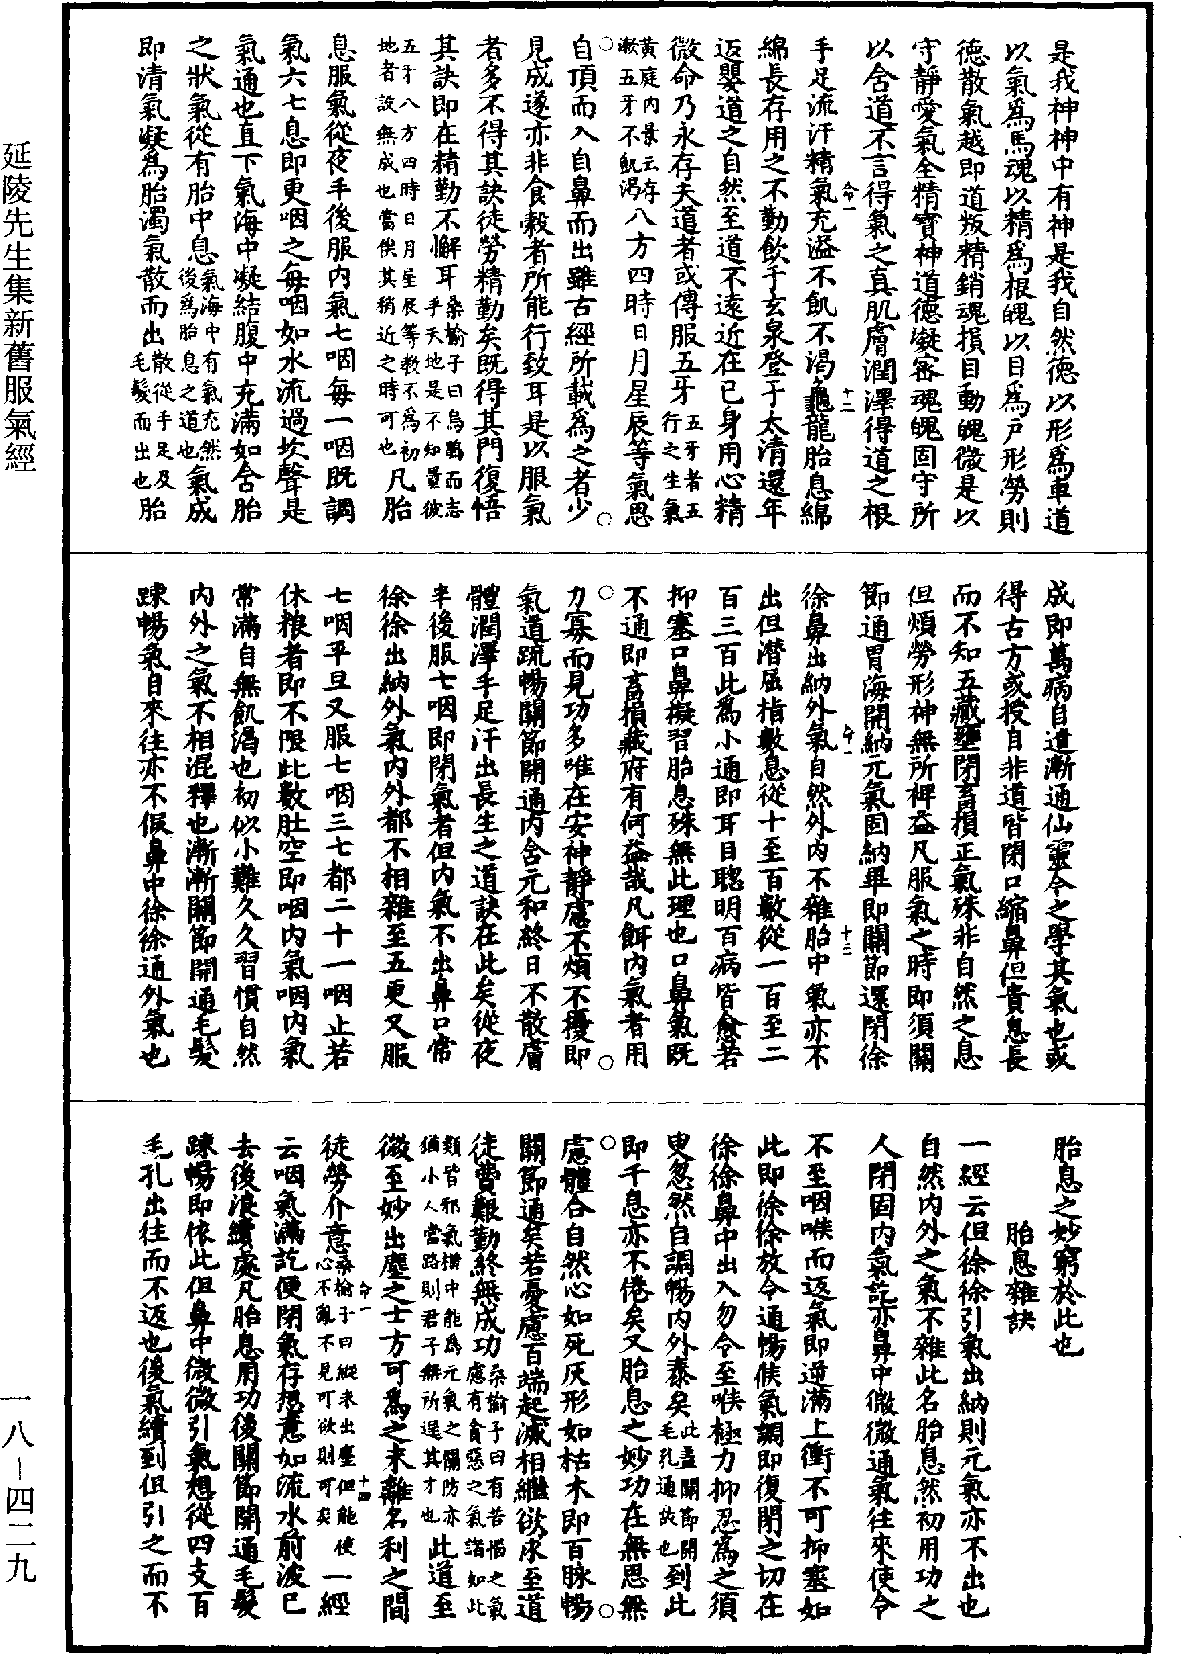 是我神神中有神是我自然德以形為車道
以氣為馬魂以精為根魄以目為戶形勞則
德散氣越即道叛精銷魂損目動魄微是以
守靜愛氣全精寶神道德凝密魂魄固守所
以含道不言得氣之真肌膚潤澤得道之根
手足流汗精氣充溢不飢不渴龜龍胎息綿
綿長存用之不勤飲于玄泉登于太清還年
返嬰道之自然至道不遠近在已身用心精
微命乃永存夫道者或傳服五牙五牙者五行之生氣
黃庭內景云存漱五牙不飢渴八方四時日月星辰等氣思
自頂而入自鼻而出雖古經所載為之者少
見成遂亦非食穀者所能行致耳是以服氣
者多不得其訣徒勞精勤矣既得其門復悟
其訣即在精勤不懈耳桑榆子曰烏鵶而志乎天地是不知量彼
五牙八方四時日月星辰等教不為初地者設無成也當俟其稍近之時可也凡胎
息服氣從夜半後服內氣七咽每一咽既調
氣六七息即更咽之每咽如水流過坎聲是
氣通也直下氣海中凝結腹中充滿如含胎
之狀氣從有胎中息氣海中有氣充然後為胎息之道也氣成
即清氣凝為胎濁氣散而出散從手足及毛髮而出也胎
成即萬病自遣漸通仙靈今之學其氣也或
得古方或授自非道皆閉口縮鼻但貴息長
而不知五藏壅閉畜損正氣殊非自然之息
但煩勞形神無所裨益凡服氣之時即須關
節通胃海開納元氣固納畢即關節還閉徐
徐鼻出納外氣自然外內不雜胎中氣亦不
出但潛屈指數息從十至百數從一百至二
百三百此為小通即耳目聰明百病皆愈若
抑塞口鼻擬習胎息殊無此理也口鼻氣既
不通即畜損藏府有何益哉凡餌內氣者用
力寡而見功多唯在安神靜慮不煩不擾即
氣道疏暢關節開通內含元和終日不散膚
體潤澤手足汗出長生之道訣在此矣從夜
半後服七咽即閉氣者但內氣不出鼻口常
徐徐出納外氣內外都不相雜至五更又服
七咽平旦又服七咽三七都二十一咽止若
休粮者即不限此數肚空即咽內氣咽內氣
常滿自無飢渴也初似小難久久習慣自然
內外之氣不相混釋也漸漸關節開通毛髮
踈暢氣自來往亦不假鼻中徐徐通外氣也
胎息之妙窮於此也
胎息雜訣
一經云但徐徐引氣出納則元氣亦不出也
自然內外之氣不雜此名胎息然初用功之
人閉固內氣訖亦鼻中微微通氣往來使令
不至咽喉而返氣即逆滿上衝不可抑塞如
此即徐徐放令通暢候氣調即復閉之切在
徐徐鼻中出入勿令至喉極力抑忍為之須
臾忽然自調暢內外泰矣此蓋關節開毛孔通故也到此
即千息亦不倦矣又胎息之妙功在無思無
慮體合自然心如死灰形如枯木即百脉暢
關節通矣若憂慮百端起滅相繼欲求至道
徒費艱勤終無成功桑榆子曰有苦惱之氣慮有貪惡之氣諸如此
類皆邪氣橫中能為元氣之關防亦猶小人當路則君子無所逞其才也此道至
微至妙出塵之士方可為之未離名利之間
徒勞介意桑榆子曰縱未出塵但能使心不亂不見可欲則可矣一經
云咽氣滿訖便閉氣存想意如流水前波已
去後浪續處凡胎息用功後關節開通毛髮
踈暢即依此但鼻中微微引氣想從四支百
毛孔出往而不返也後氣續到但引之而不
延陵先生集新舊服氣經
一八－四二九